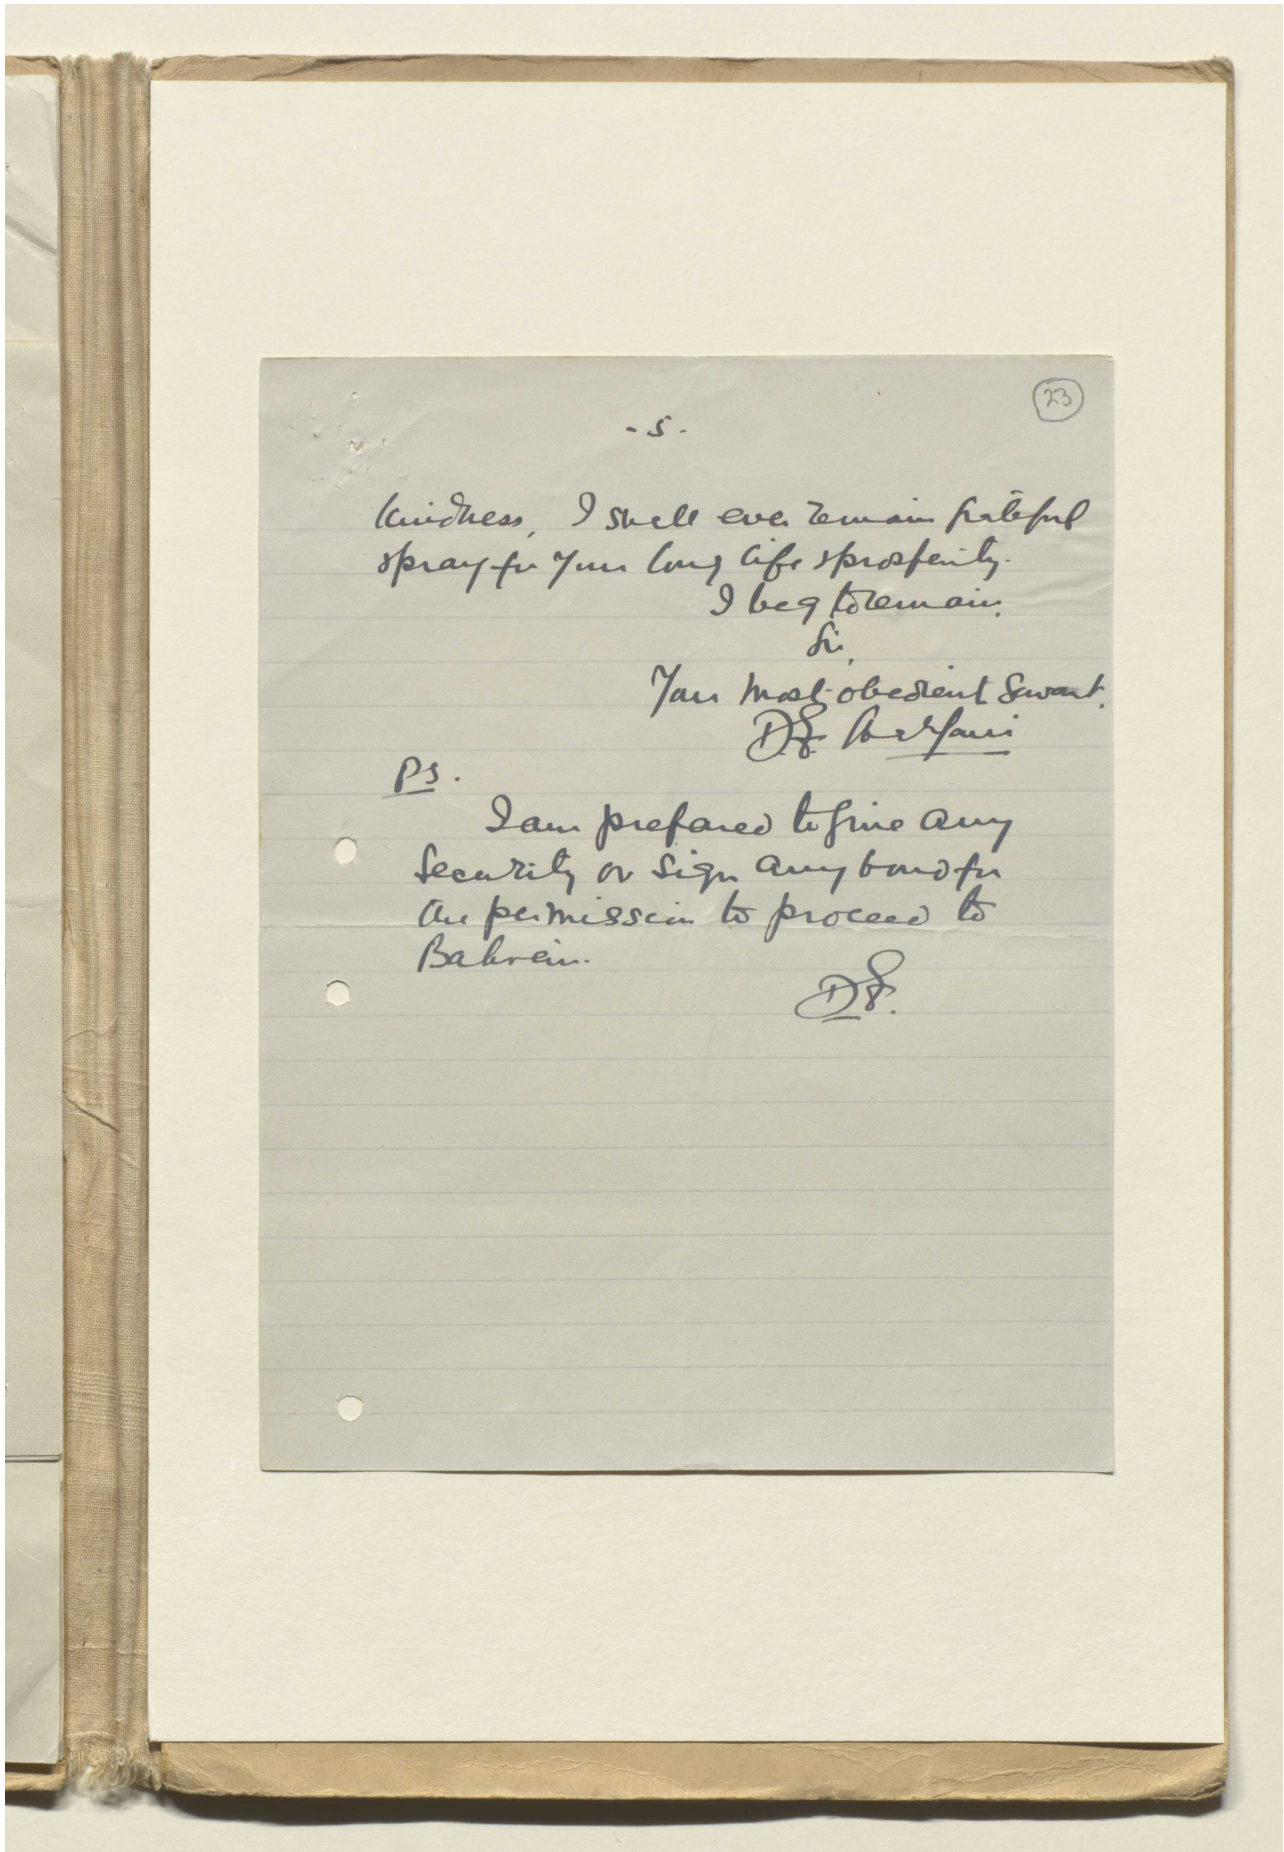 23
- 5 -
kindness, I shall ever remain grateful
& pray for your long life & prosperity.
I beg to remain,
Sir,
Your most obedient Servant.
PS.
I am prepared to give any
Security or Sign any bond for
the permission to proceed to
Bahrein.